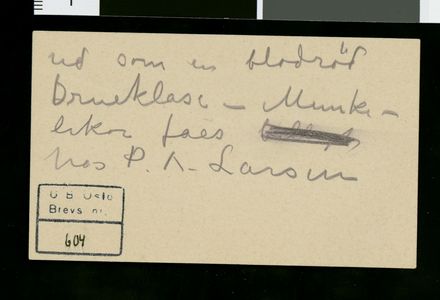 ud som en blodrød
Drueklase – Munke–
likør faaes
hos P. A. Larsen
U B Oslo
Brevs. nr.
604